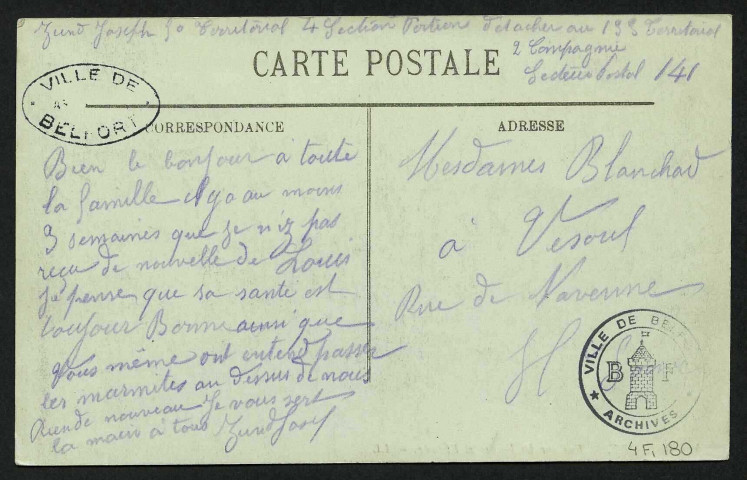 Zund Joseph 50 Territorial 4 Section Portion detacher au 133 Territorial
2 Compagnie
Secteur Postal 141
CARTE POSTALE
VILLE DE
BELFORT
CORRESPONDANCE
Bien le bonjour a toute
la famille il ya au moins
3 semaines que je n'ez pas
reçu de nouvelle de Louis
je pense que sa santé est
toujour Bonne ainsi que
Vous même ont entend passer
les marmites au dessus de nous
Rien de nouveau Je vous sert
la main a tous Zund Josef
ADRESSE
Mesdames Blanchad
à Vesoul
Rue de Navenne
Hte
VILLE DE BELFORT
B T
★ ARCHIVES
4 Fi 180